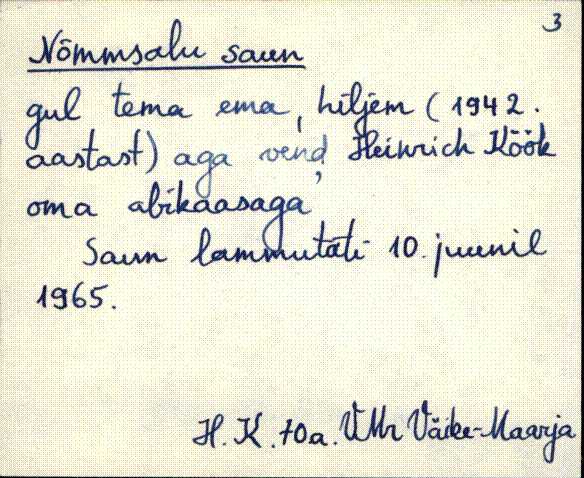 3
Nõmmsalu saun
gul tema ema, hiljem (1942.
aastast) aga vend, Heinrich Köök
oma abikaasaga
Saun lammutati 10. juunil
1965.
H. K. 70a. VMr Väike-Maarja